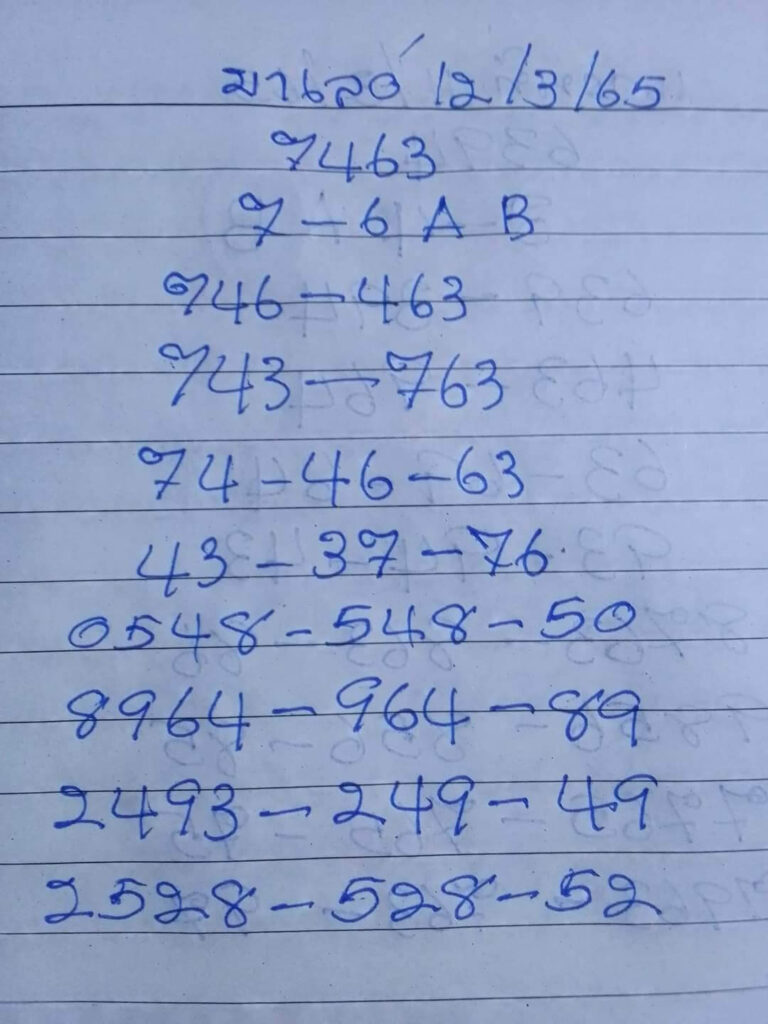 มาเลย์ 12/3/65
7463
7-6 A B
746-463
743-763
74-46-63
43-37-76
0548-548-50
8964-964-89
2493-249-49
2528-528-52